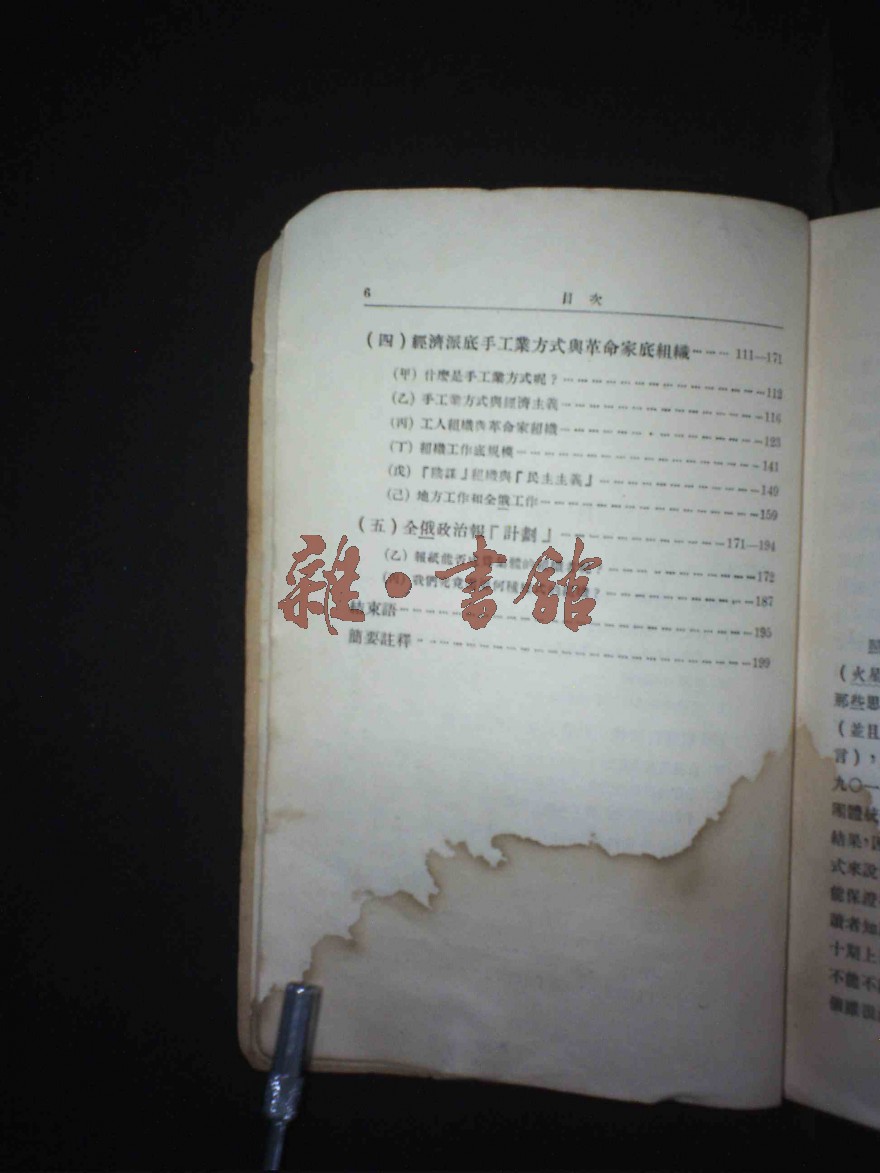 6
目次
(四)經濟派底手工業方式與革命家底組織 111—171
(甲)什麼是手工業方式呢? 112
(乙)手工業方式與經濟主義 116
(丙)工人組織與革命家組織 123
(丁)組織工作底規模 141
(戊)『陰謀』組織與『民主主義』 149
(己)地方工作和全俄工作 159
(五)全俄政治報『計劃』 171—194
(乙)報紙能否 172
(丙)我們究竟 何種 ? 187
結束語 195
簡要註釋 199
雜·書館
(火星
那些思
(並且
言),
九〇一
團體統
結果,
式來說
能保證
讀者知
十期上
不能不